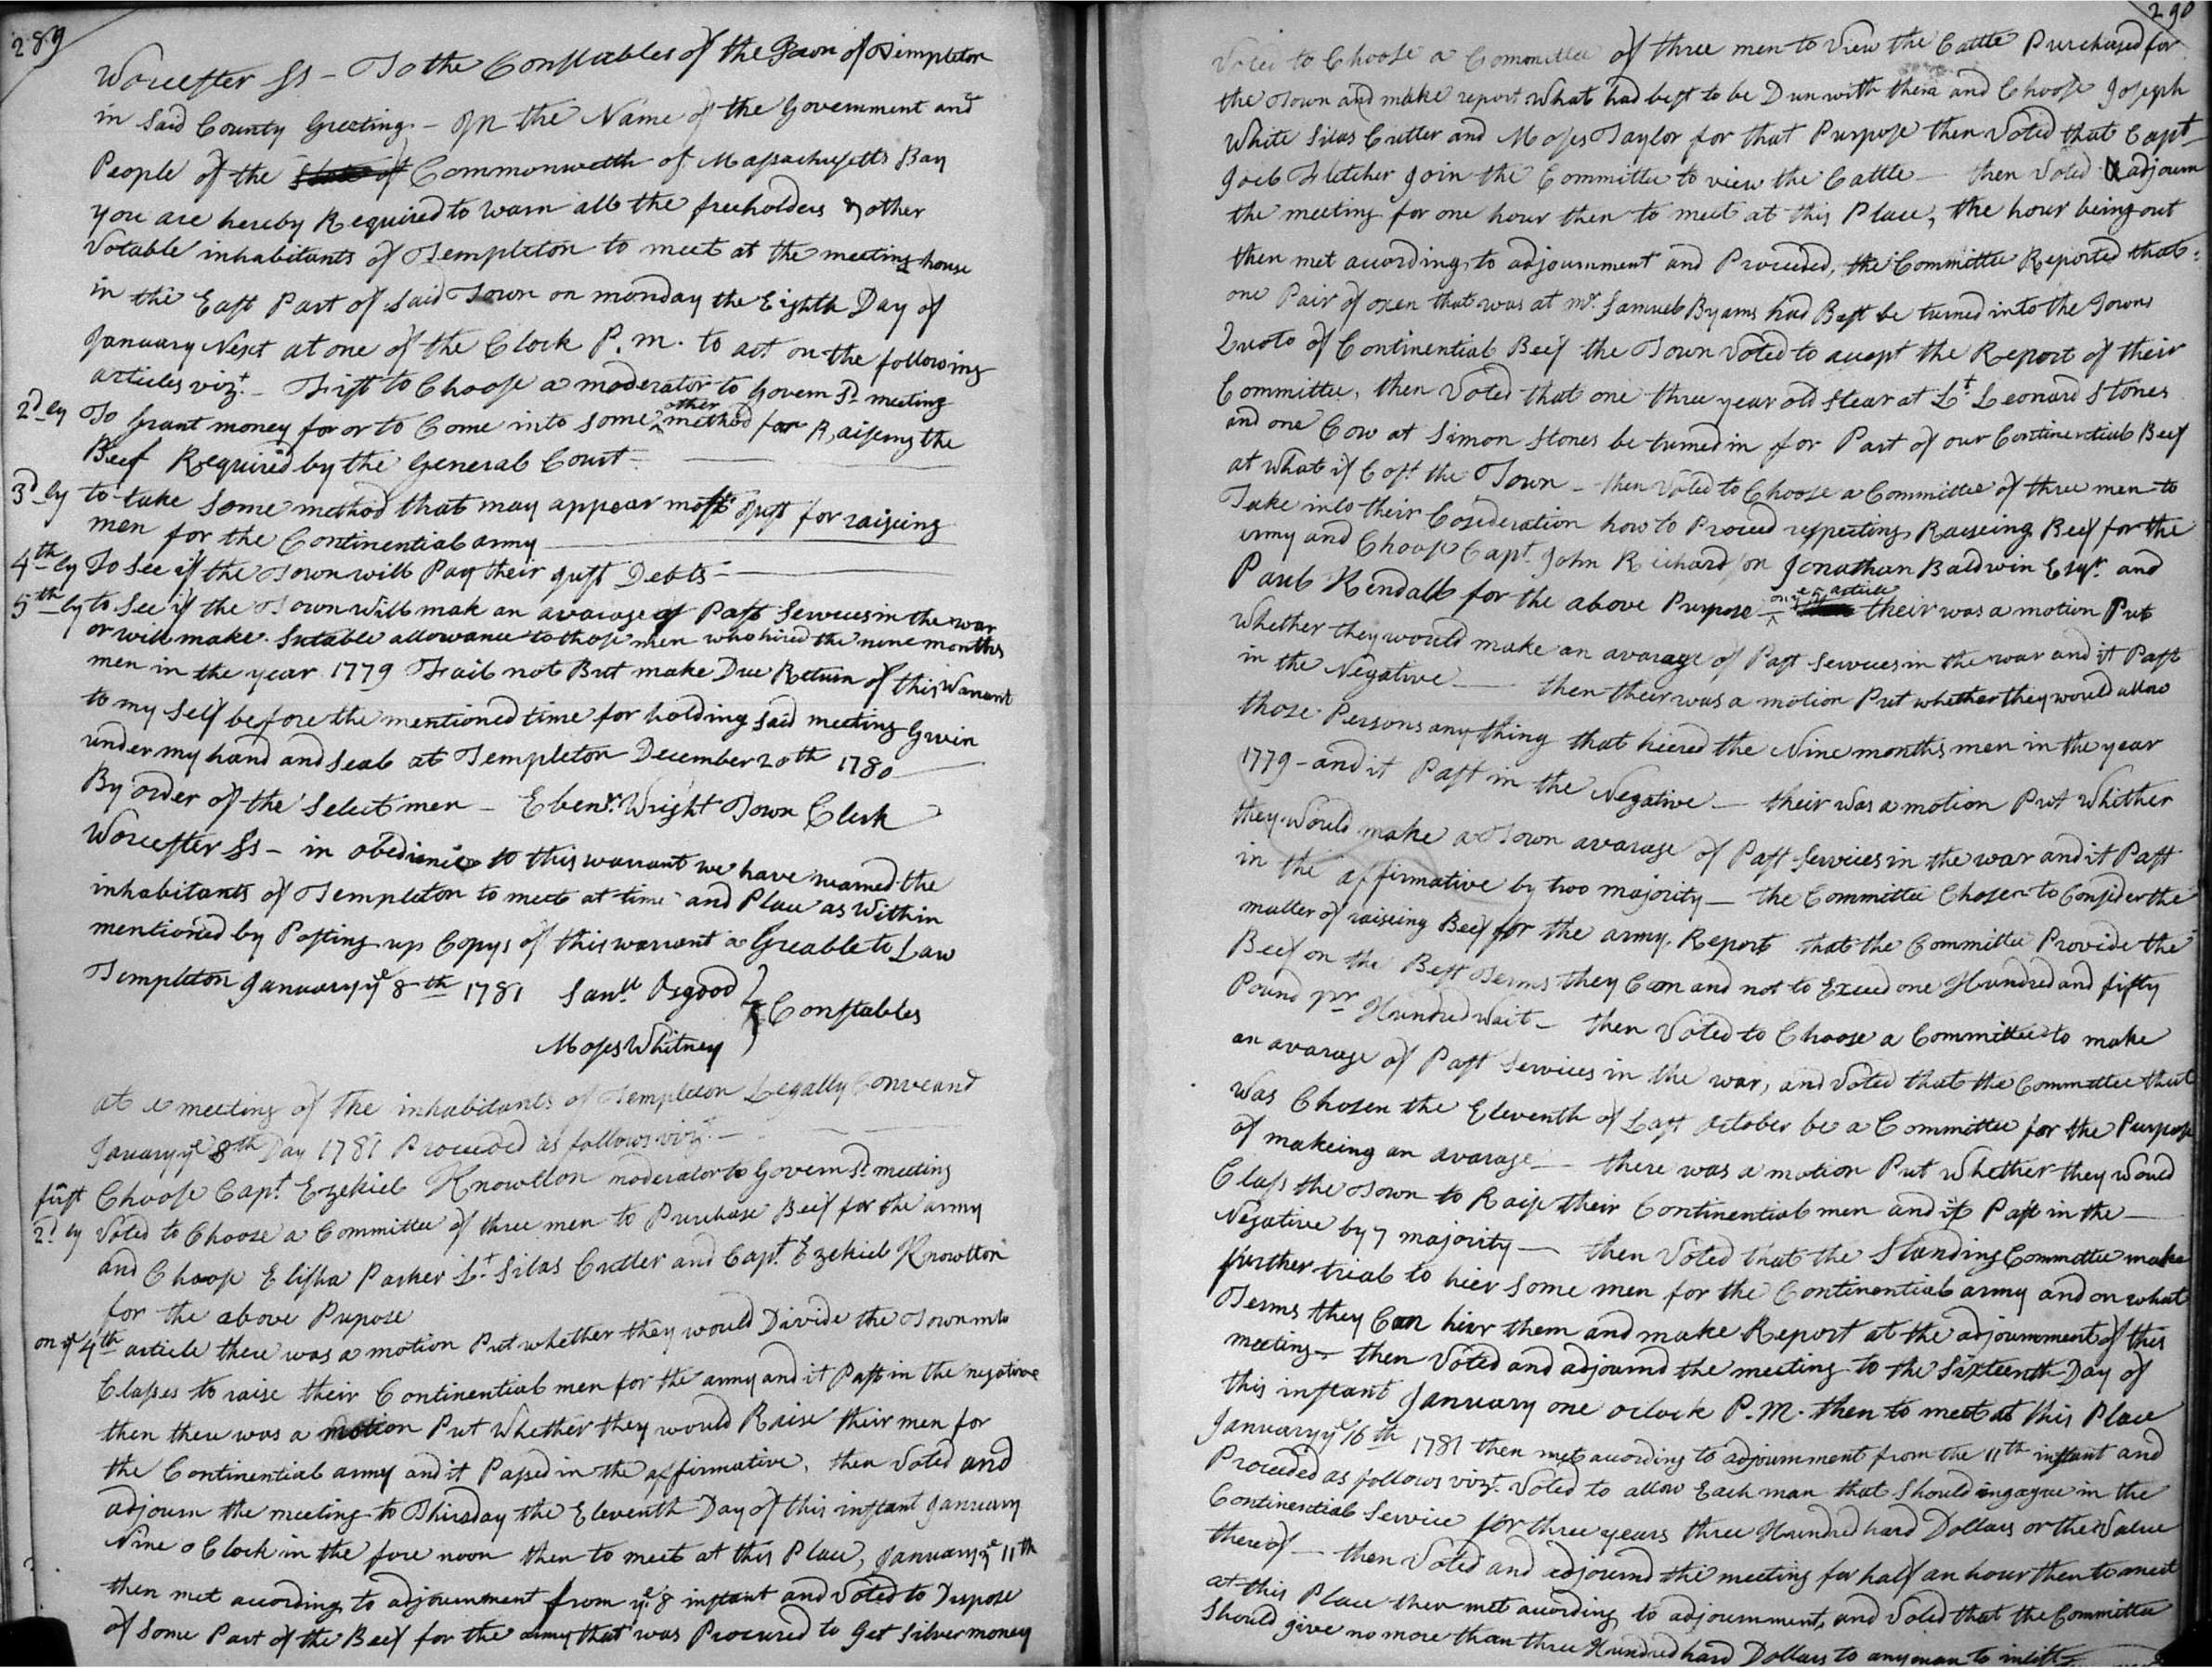 289
Worcester ss - To the Constables of the Town of Templeton
in Said County Greeting - In the Name of the Government and
People of the State of Commonwelth of Massachusetts Bay
you are hereby Required to warn all the freeholders & other
Votable inhabitants of Templeton to meet at the meeting house
in the East Part of Said Town on monday the Eighth Day of
January Next at one of the Clock P. m. to act on the following
articles vizt. - First to Choose a moderator to Govern sd. meeting
2dly To Grant money for or to Come into some other method for Raiseing the
Beef Required by the General Court -
3dly to take some method that may appear most Just for raiseing
men for the Continential army
4thly To See if the Town will Pay their Just Debts -
5thly to See if the Town will mak an avarage of Past Services in the war
or will make Sutable allowance to those men who hired the nine months
men in the year 1779 Fail not But make Due Return of this Warrant
to my self before the mentioned time for holding said meeting Givin
under my hand and Seal at Templeton December 20th 1780
By order of the Select men - Ebenr. Wright Town Clerk
Worcester ss - in obedience to this warrant we have warned the
inhabitants of Templeton to meet at time and Place as Within
mentioned by Posting up Copys of this warrant a Greable to Law
Templeton January ye 8th 1781 Samll Osgood } Constables
Moses Whitney
at a meeting of the inhabitants of Templeton Legally Conveand
January ye 8th Day 1781 Proceeded as follows vizt. -
first Choose Capt. Ezekiel Knowlton moderator to Govern sd. meeting
2dly Voted to Choose a Committee of three men to Purchase Beef for the army
and Choose Elisha Parker Lt. Silas Cutler and Capt. Ezekiel Knowlton
for the above Pupose
on ye 4th article there was a motion Put whether they would Divide the Town into
Classes to raise their Continential men for the army and it Past in the negative
then there was a motion Put Whether they would Raise their men for
the Continential army and it Passed in the affirmative, then Voted and
adjourn the meeting to Thirsday the Eleventh Day of this instant January
Nine o Clock in the fore noon then to meet at this Place, January ye 11th
then met according to adjournment from ye 8 instant and Voted to Dispose
of Some Part of the Beef for the army that was Procured to Get Silver money
290
Voted to Choose a Committee of three men to View the Cattle Purchased for
the Town and make report what had best to be Dun with them and Choose Joseph
White Silas Cutler and Moses Taylor for that Purpose then Voted that Capt
Joel Fletcher join the Committee to view the Cattle - then Voted & adjourn
the meeting for one hour then to meet at this Place, the hour being out
then met according to adjournment and Proceeded, the Committee Reported that
one Pair of oxen that was at mr. Samuel Byams had Best be turned into the Towns
Quoto of Continential Beef the Town Voted to accept the Report of their
Committee, then Voted that one three year old stear at Lt Leonard Stones
and one Cow at Simon Stones be turned in for Part of our Continential Beef
at what it Cost the Town - then Voted to Choose a Committee of three men to
Take into their Cosideration how to Proceed respecting Raiseing Beef for the
army and Choose Capt. John Richardson Jonathan Baldwin Esqr. and
Paul Kendall for the above Purpose - on ye 5 article their was a motion Put
Whether they would make an avarage of Past Services in the war and it Past
in the Negative - then their was a motion Put whether they would allow
those Persons any thing that hiered the Nine months men in the year
1779 - and it Past in the Negative - their was a motion Put Whither
they Would make a Town avarage of Past Services in the war and it Past
in the affirmative by two majority - the Committee Chosen to Consider the
matter of raiseing Beef for the army Report that the Committee Provide the
Beef on the Best Terms they Can and not to Exceed one Hundred and fifty
Pound pr Hundred wait - then Voted to Choose a Committee to make
an avarage of Past Services in the war, and Voted that the Committee that
Was Chosen the Eleventh of Last October be a Committee for the Purpose
of makeing an avarage - there was a motion Put Whether they Would
Class the Town to Raise their Continential men and it Past in the -
Negative by 7 majority - then Voted that the Standing Committee make
further trial to hier some men for the Continential army and on what
Terms they Can hier them and make Report at the adjournment of this
meeting - then Voted and adjournd the meeting to the Sixteenth Day of
this instant January one oclock P.M. then to meet at this Place
January ye 16th 1781 then met according to adjournment from the 11th instant and
Proceeded as follows vizt. Voted to allow Each man that Should ingague in the
Continential Service for three years three Hundred hard Dollars or the Value
thereof - then Voted and adjournd the meeting for half an hour then to meet
at this Place then met according to adjournment, and Voted that the Committee
should give no more than three Hundred hard Dollars to any man to inlist